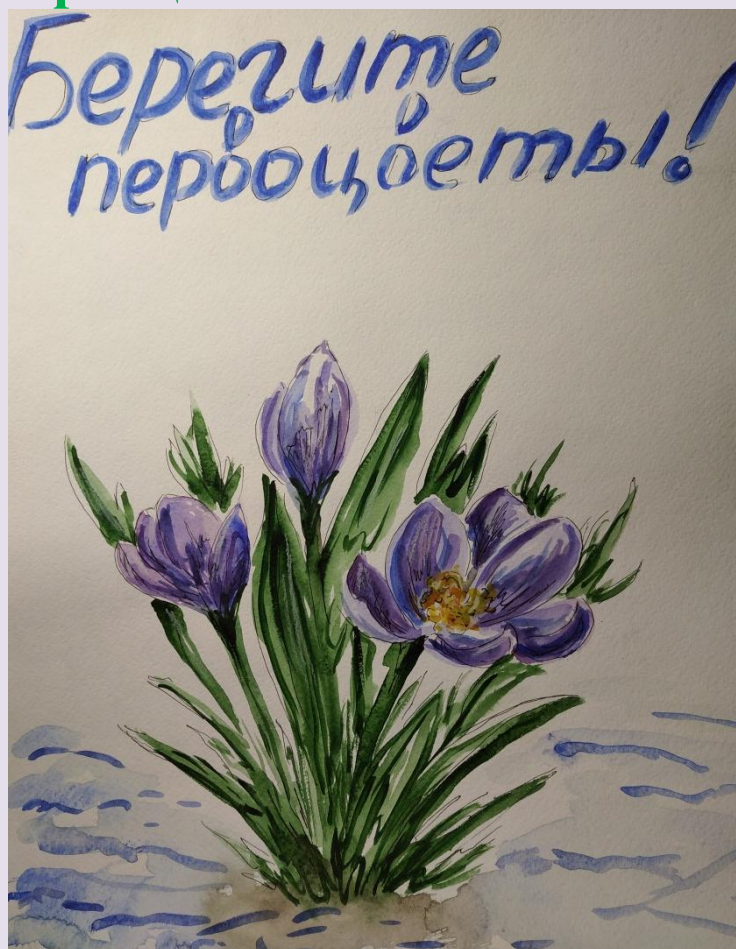 Берегите
первоцветы!